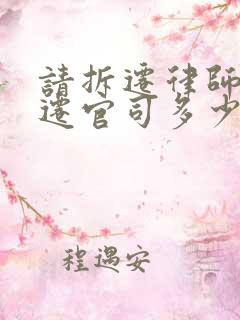 請拆遷律師
遷官司多少
程遇安